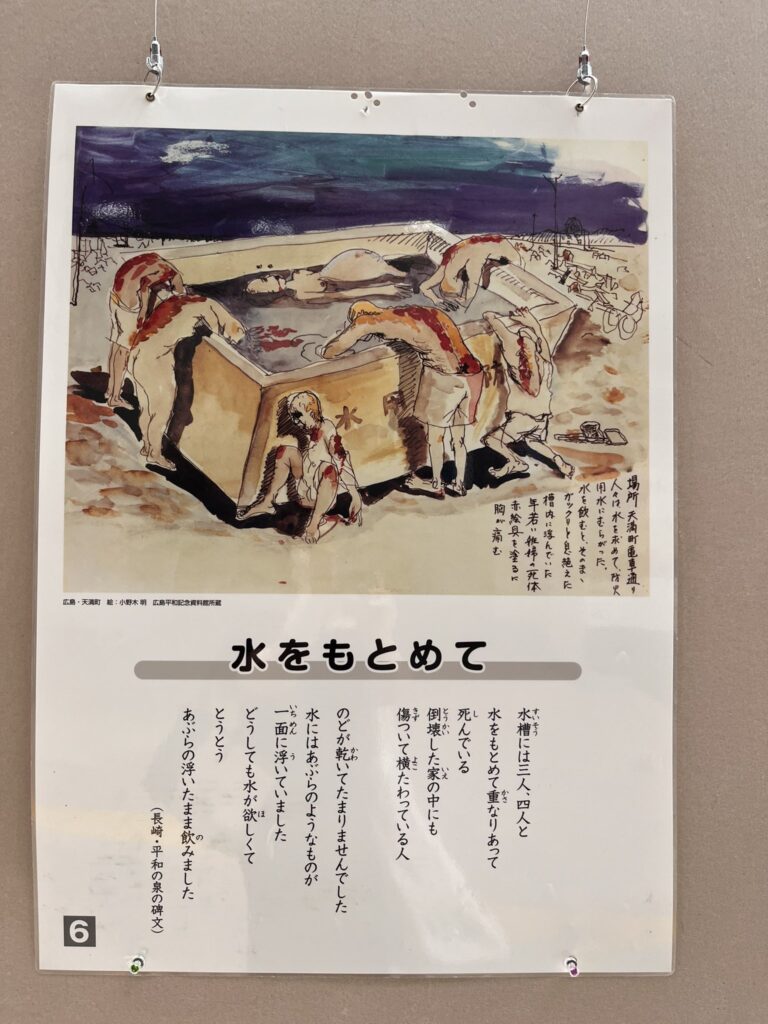 水
用
場所 天満町電車通り
人々は水を求めて、防火
用水にむらがった。
水を飲むと、そのまゝ
ガックリと息絶えた
槽内に浮んでいた
年若い妊婦の死体
赤絵具を塗るに
胸が痛む
広島・天満町 絵：小野木 明 広島平和記念資料館所蔵
水をもとめて
水槽には三人、四人と
水をもとめて重なりあって
死んでいる
倒壊した家の中にも
傷ついて横たわっている人
のどが乾いてたまりませんでした
水にはあぶらのようなものが
一面に浮いていました
どうしても水が欲しくて
とうとう
あぶらの浮いたまま飲みました
（長崎・平和の泉の碑文）
6